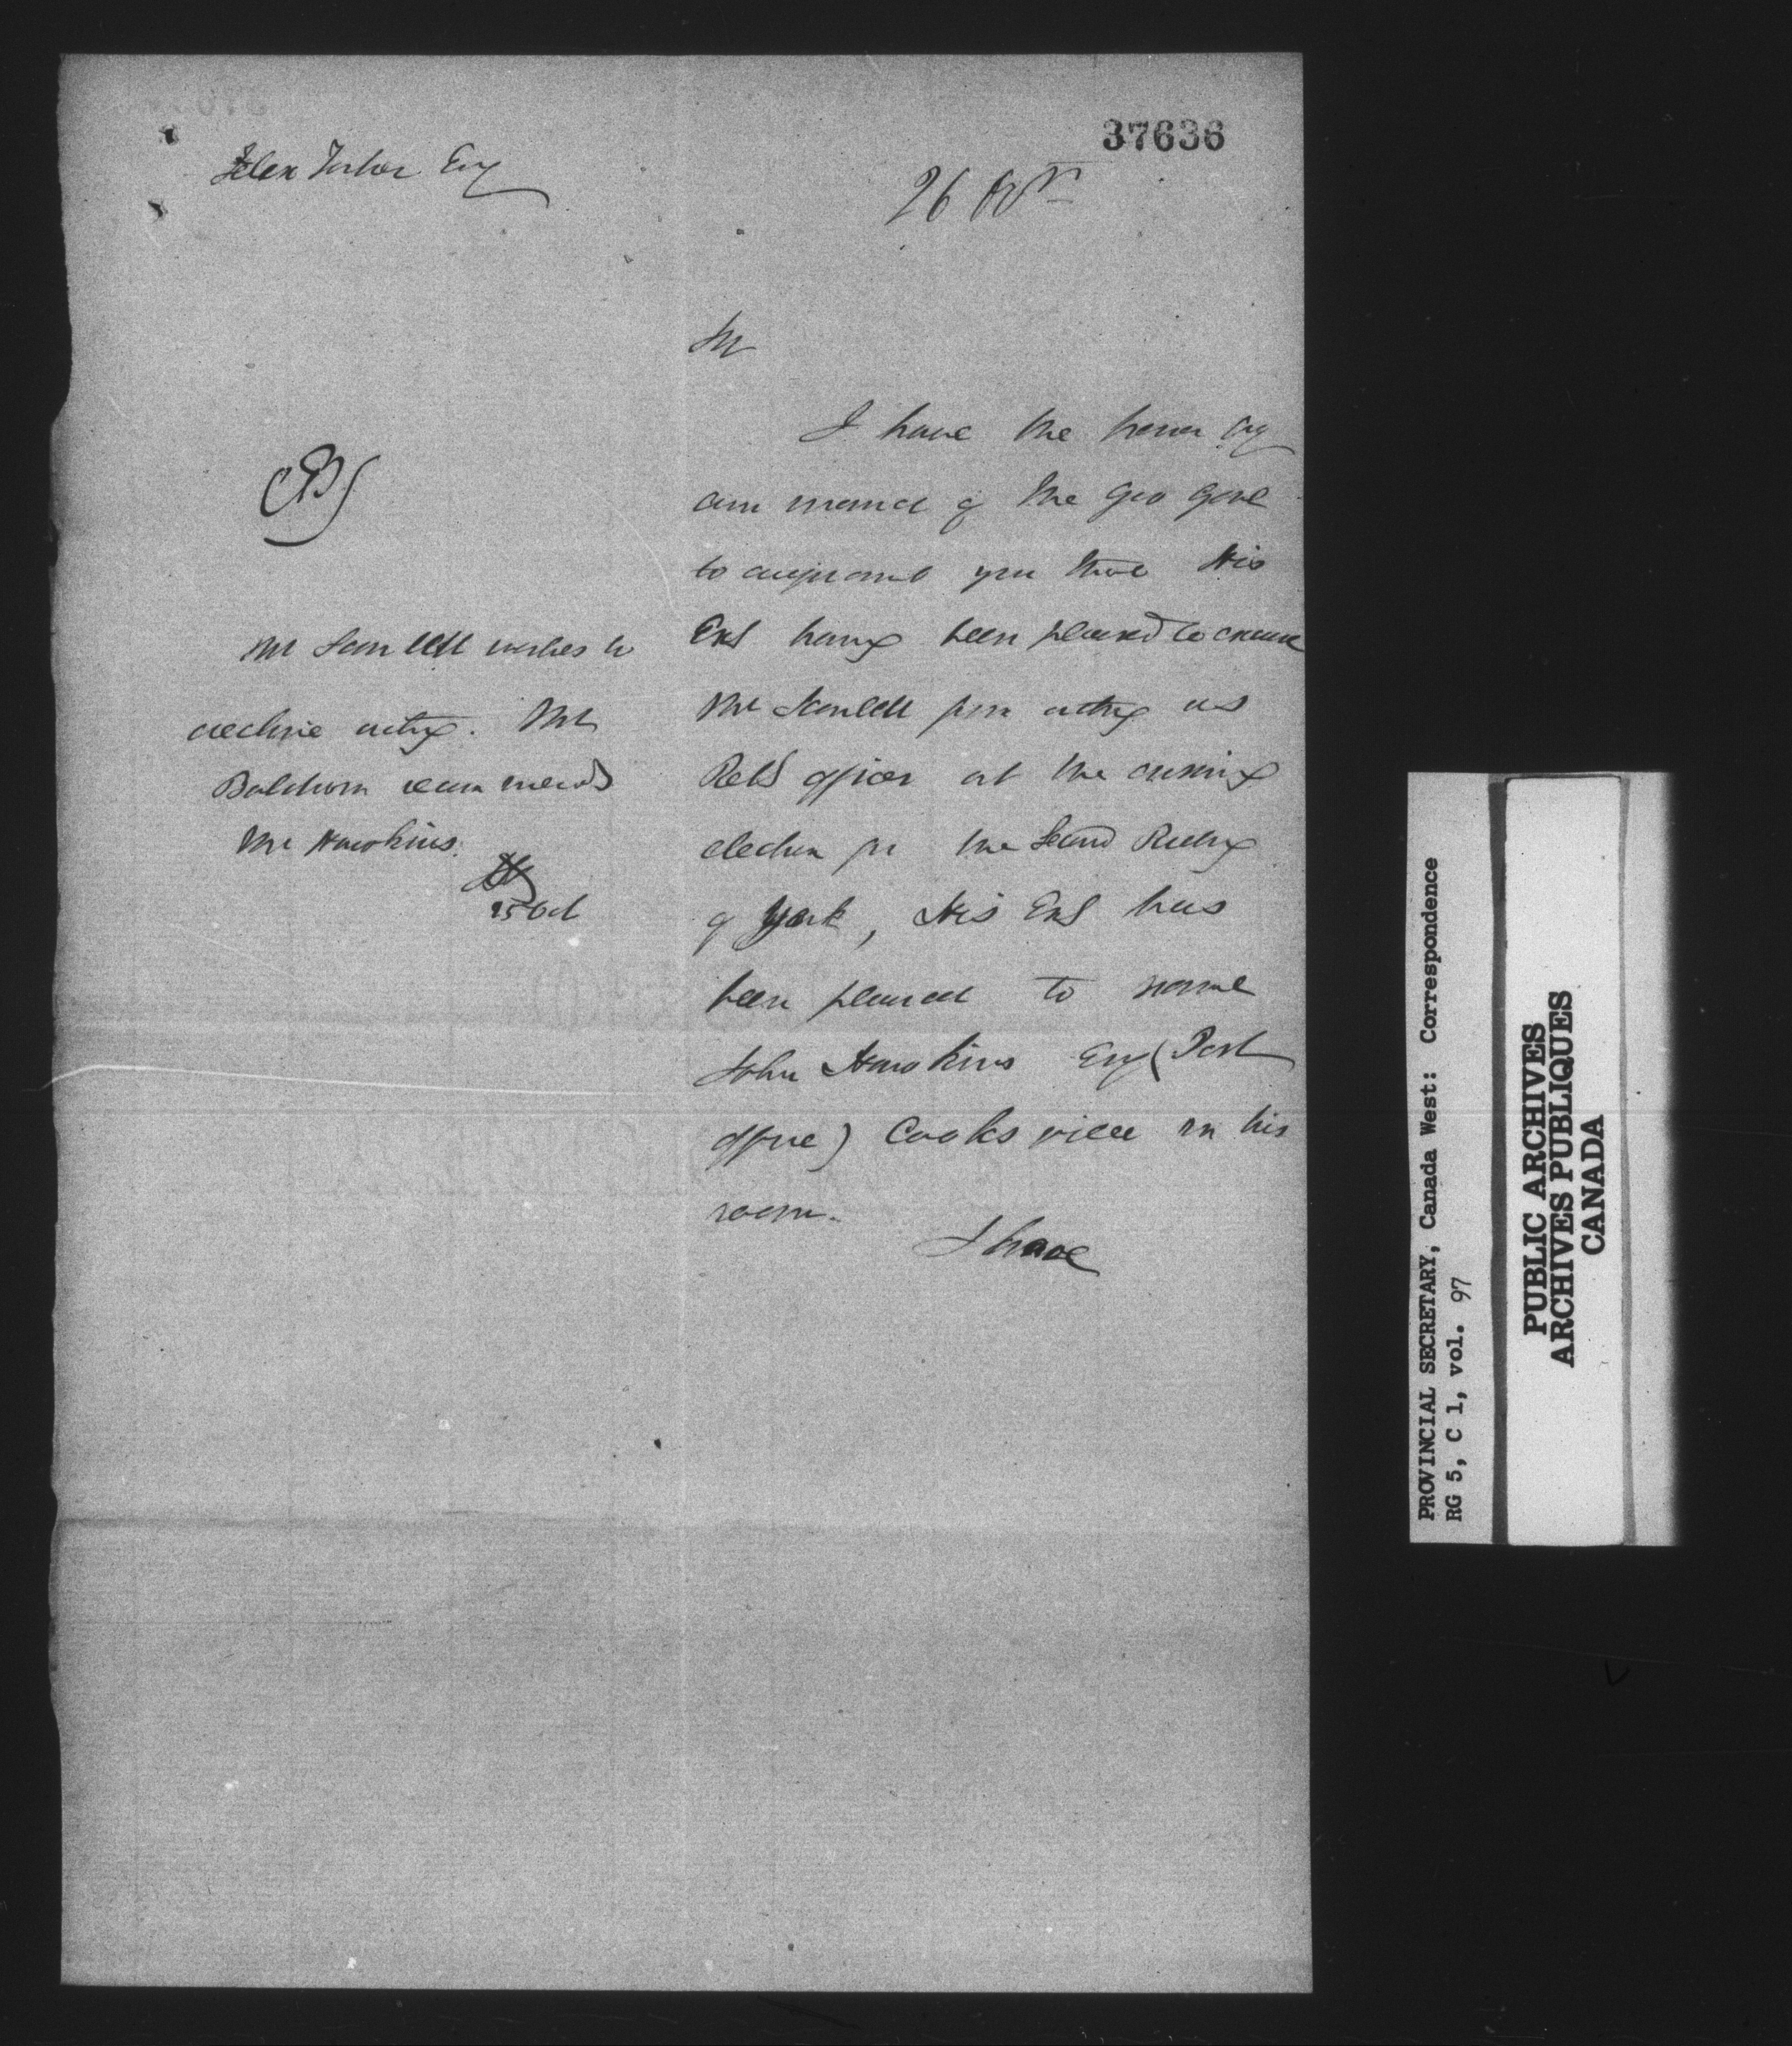 37636
26 Octr
Sir
I have the honor by
command of the Gov Genl
to acquaint you that His
Exy having been pleased to excuse
Mr Scarlett from acting as
Retg officer at the ensuing
election for the Second Riding
of York, His Exy has
been pleased to name
John Hawkins Esq (Post
office) Cooksville in his
room.
I have
Esq
Mr Scarlett wishes to
decline acting. Mr
Baldwin recommends
Mr Hawkins.
25 Oct
PROVINCIAL SECRETARY, Canada West: Correspondence
RG 5, C 1, vol. 97
PUBLIC ARCHIVES
ARCHIVES PUBLIQUES
CANADA